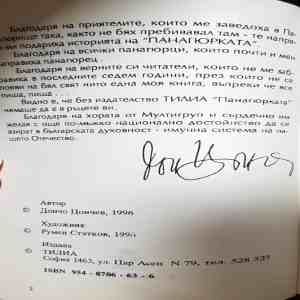 Благодаря на приятелите, които ме заведоха в Па-
така, както не бях пребивавал там - те напра-
ми подариха историята на "ПАНАГЮРКАТА"
Благодаря на всички панагюрци, които почи и мен
направиха панагюрец.
Благодаря на верните си читатели, които не ме заб-
равиха в последните седем години, през които не се
появи на бял свят нито една моя книга, въпреки че все
пиша, пиша ...
Видно е, че без издателство ТИЛИА "Панагюрката"
нямаше да е в ръцете ви.
Благодаря на хората от Мултигруп и сърдечно им
желая с още по-мъжко национално достойнство да се
взират в българската духовност - имунна система на
нашето Отечество.
Автор
© Дончо Цончев, 1996
Художник
© Румен Статков, 1996
Издава
© ТИЛИА
София 1463, ул. Цар Асен N 79, тел. 528 527
ISBN 954 - 8706 - 63 - 6